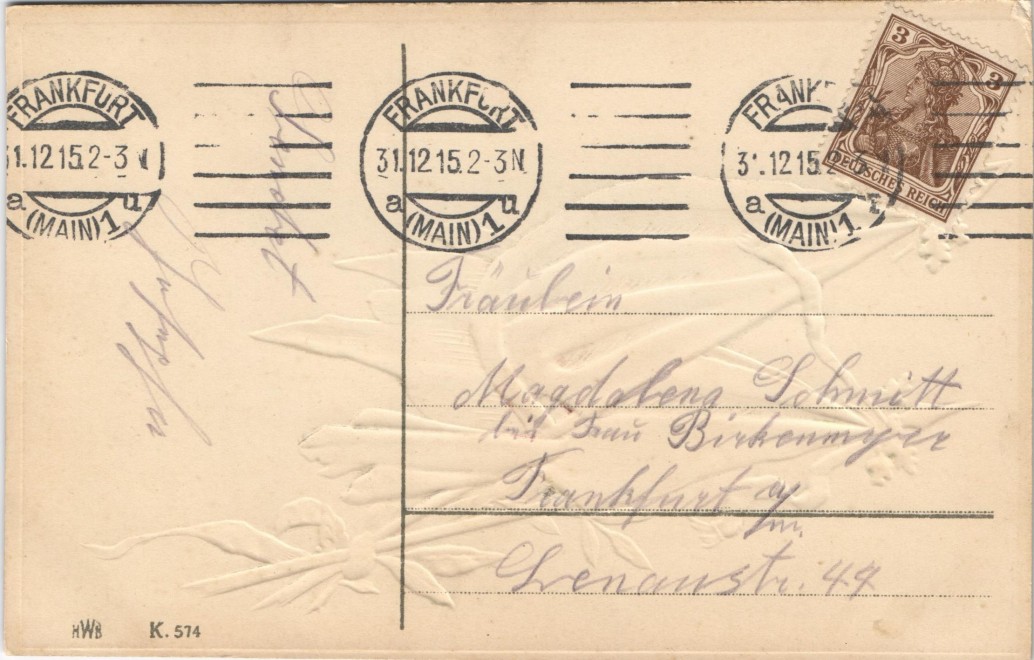 FRANKFURT
31.12.15. 2-3 N
a u
(MAIN) 1
FRANKFURT
31.12.15. 2-3 N
a u
(MAIN) 1
FRANK
31.12.15. 2
a
(MAIN) 1
3 3
DEUTSCHES REICH
Fräulein
Magdalena Schmitt
bei Frau Birkenmeyer
Frankfurt a/m.
Lenaustr. 44
HWB K. 574